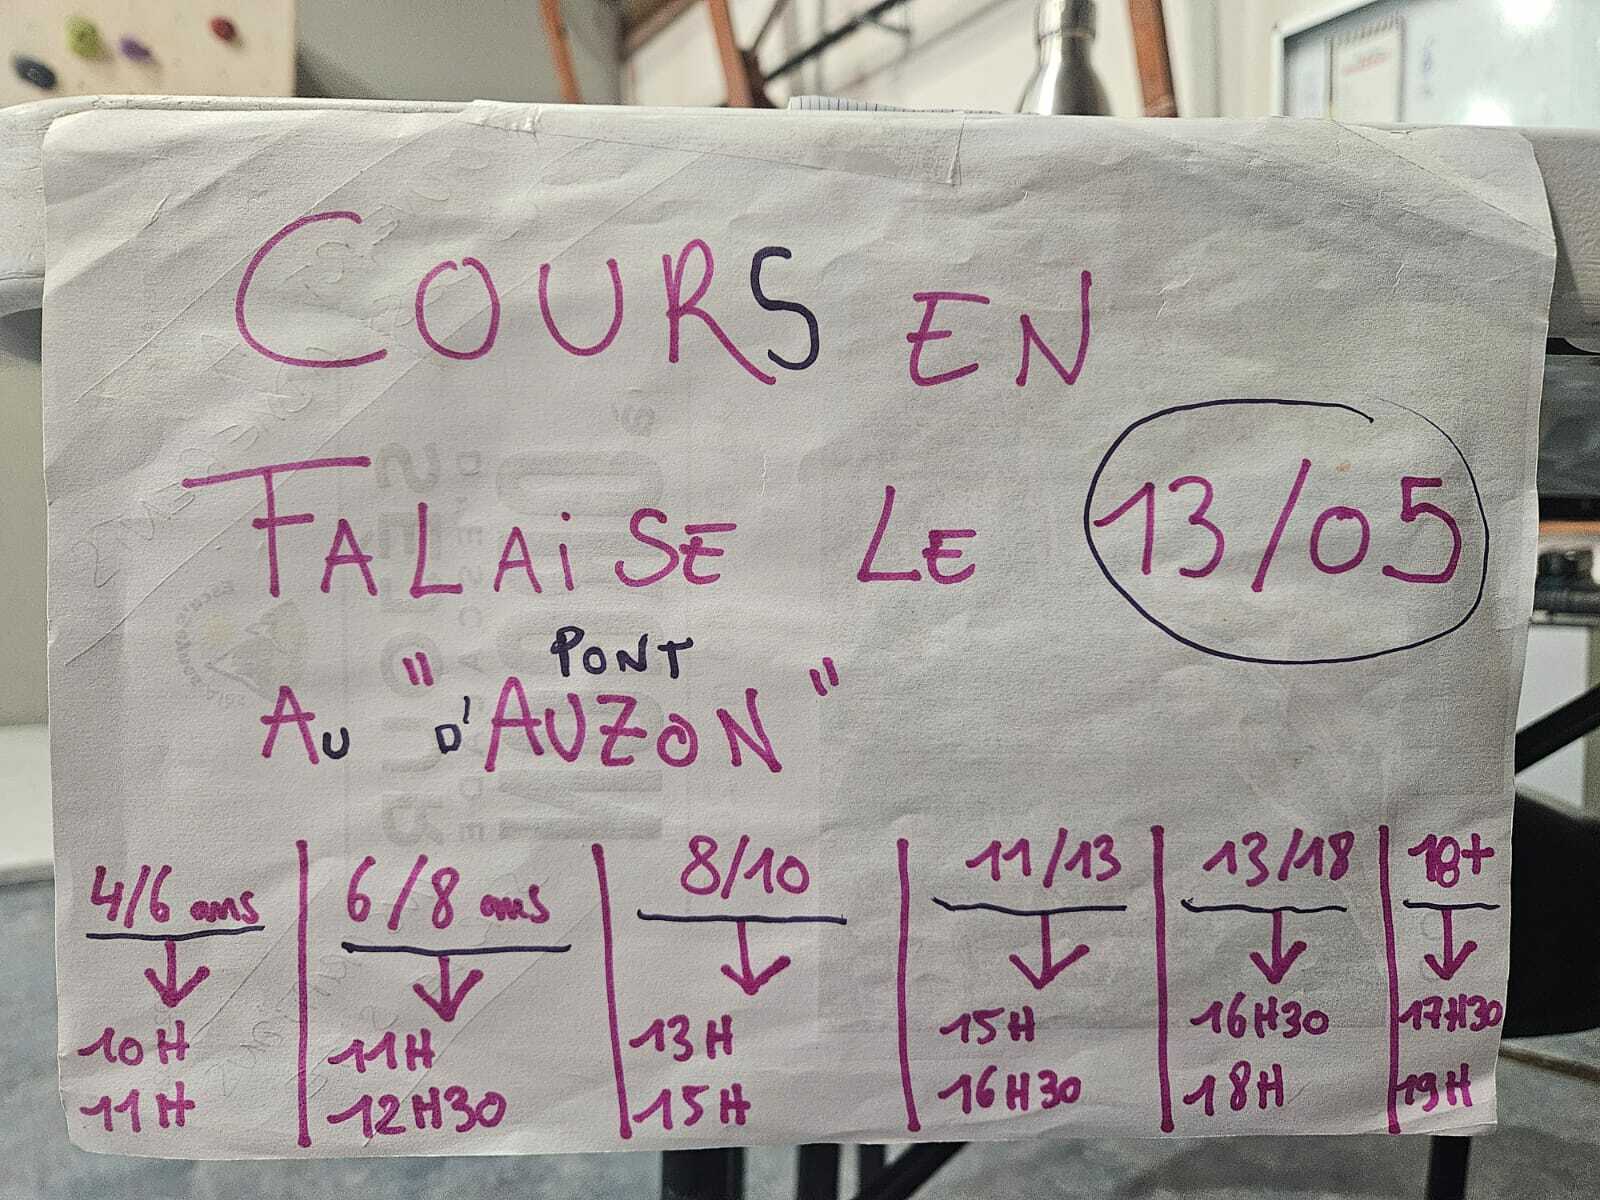 COURS EN
FALAISE LE 13/05
AU "PONT
D'AUZON"
4/6 ans
10H
11H
6/8 ans
11H
12H30
8/10
13H
15H
11/13
15H
16H30
13/18
16H30
18H
18+
17H30
19H